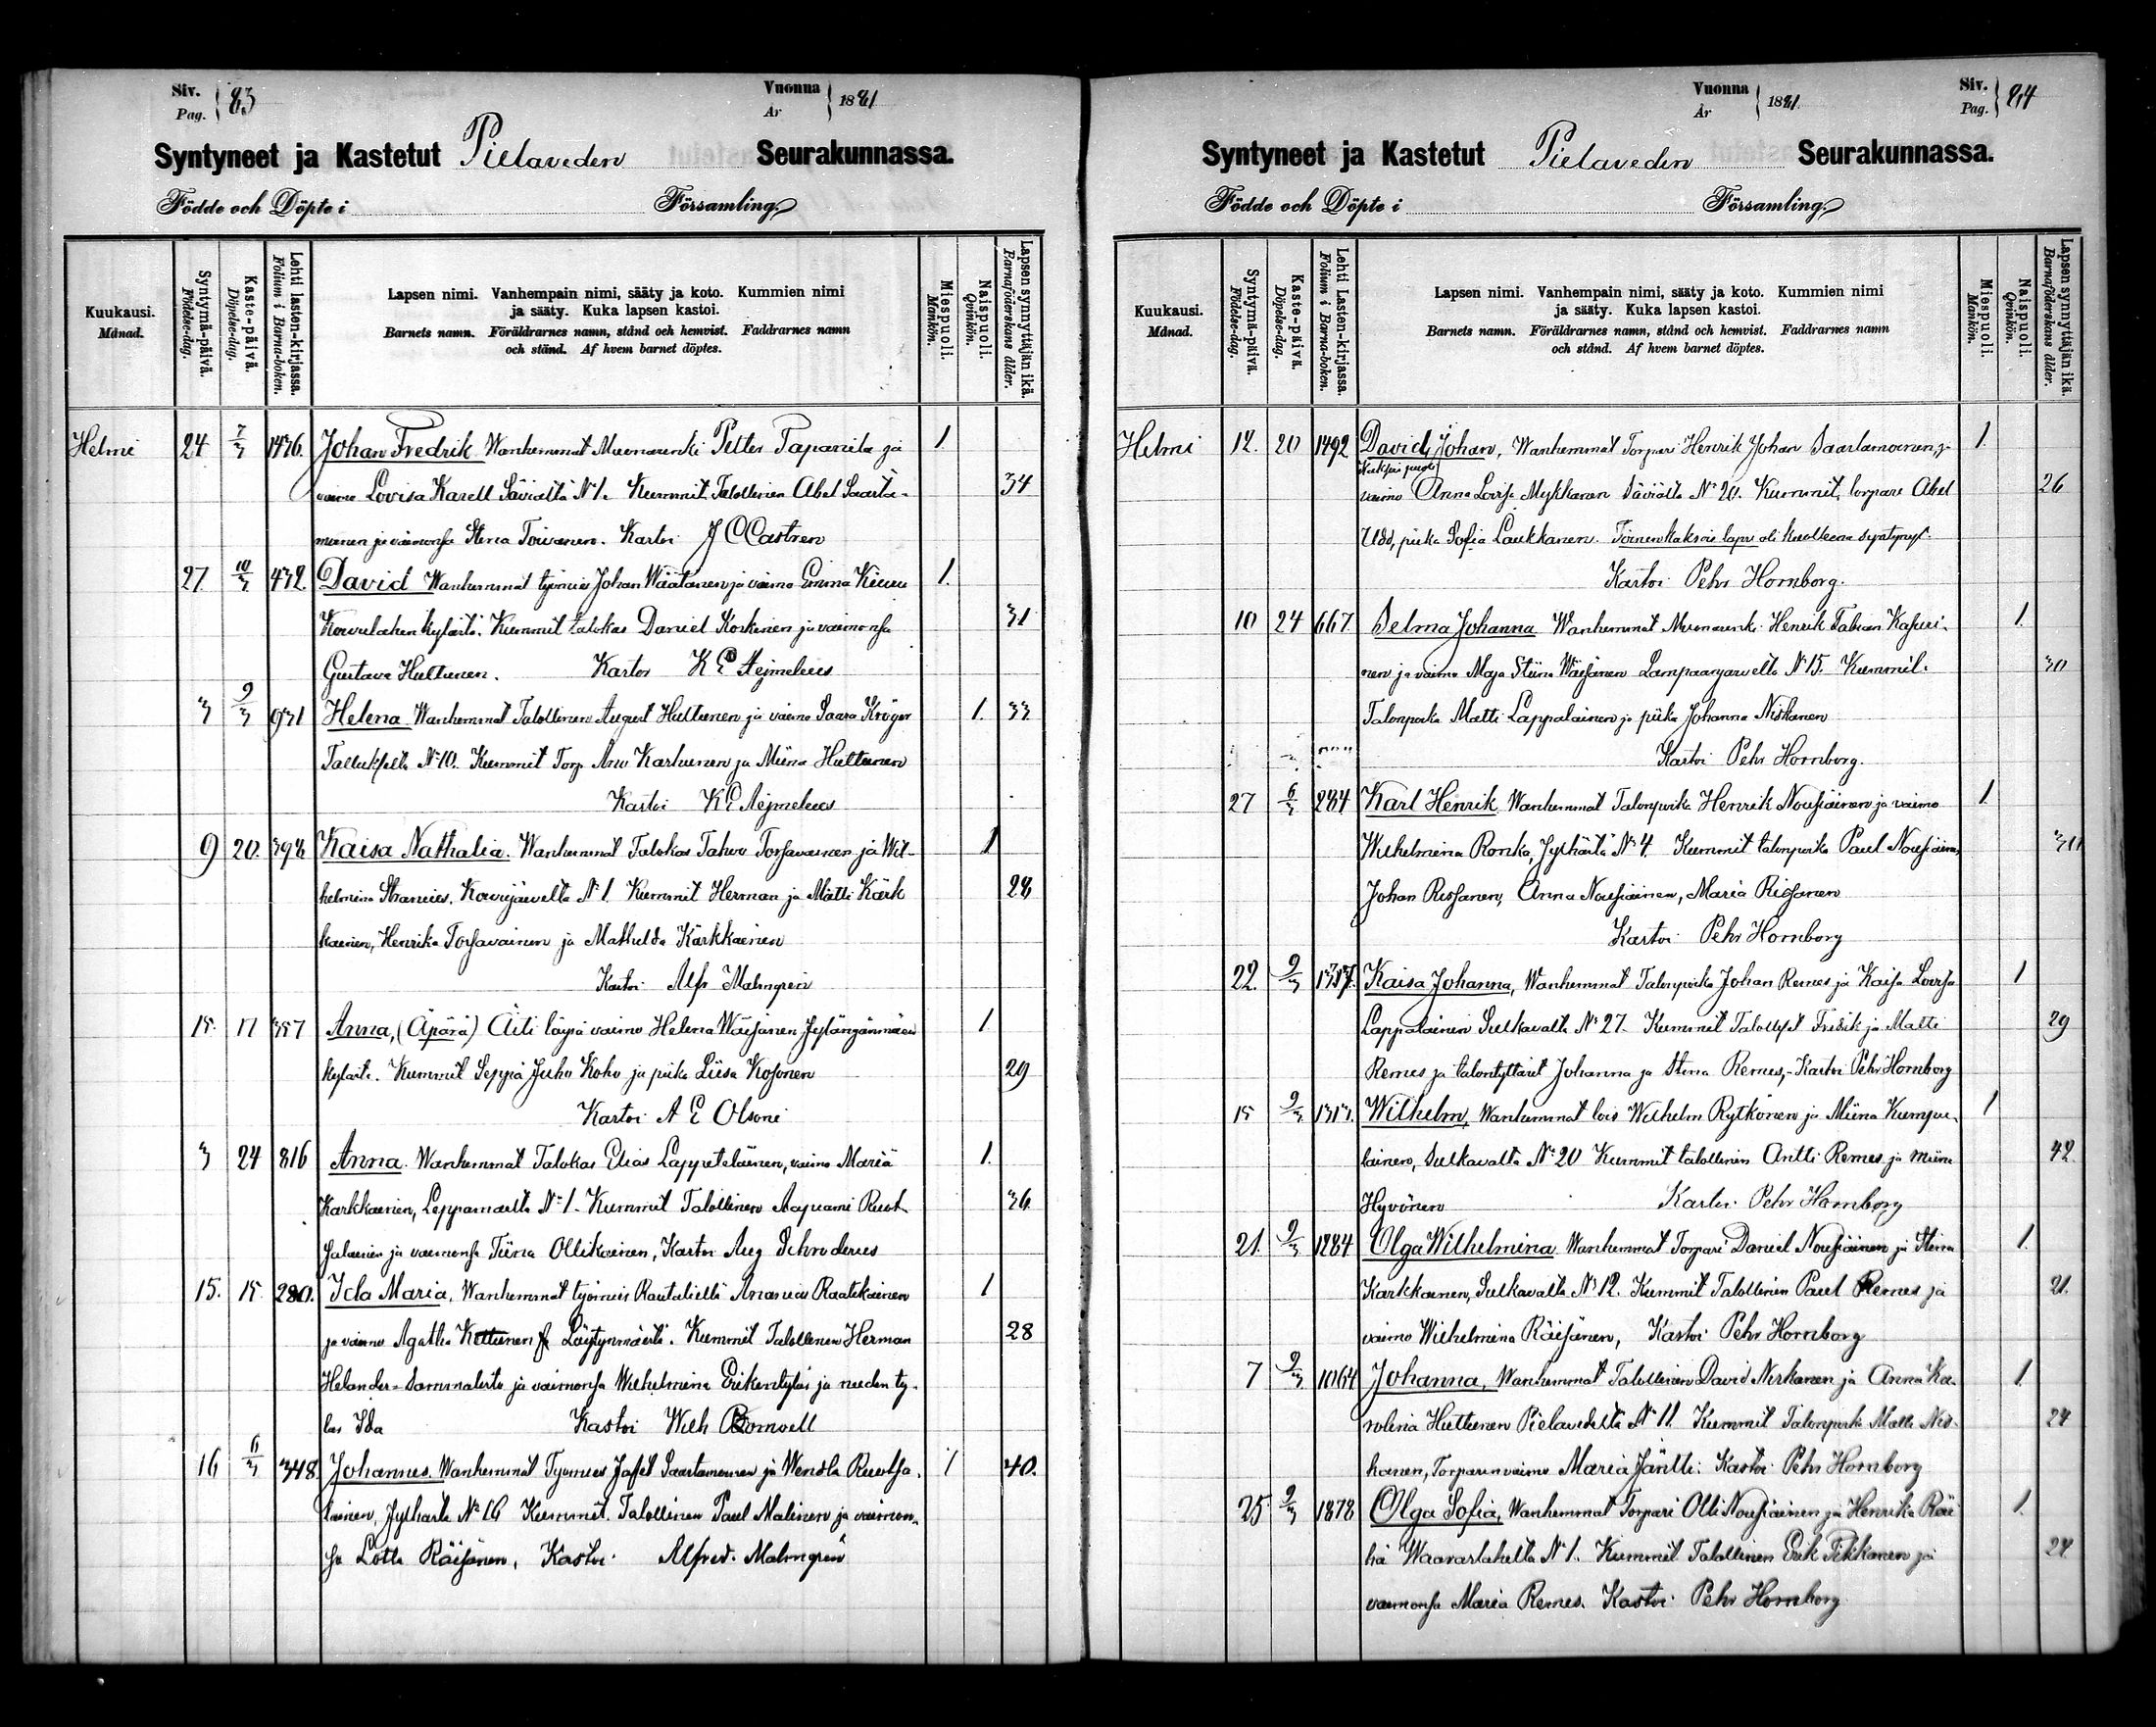 Siv. Pag. 83
Vuonna År 1881
Syntyneet ja Kastetut Pielaveden Seurakunnassa.
Födde och Döpte i Församling.
Kuukausi. Månad.
Syntymä-päivä. Födelse-dag.
Kaste-päivä. Döpelse-dag.
Lehti lasten-kirjassa. Folium i Barna-boken.
Lapsen nimi. Vanhempain nimi, sääty ja koto. Kummien nimi
ja sääty. Kuka lapsen kastoi.
Barnets namn. Föräldrarnes namn, stånd och hemvist. Faddrarnes namn
och stånd. Af hvem barnet döptes.
Miespuoli. Mankön.
Naispuoli. Qvinkön.
Lapsen synnyttäjän ikä. Barnaföderskans ålder.
Helmi 24 7/3 1476. Johan Fredrik Wanhemmat Petter Tapanila ja 1.
vaimo Lovisa Karell Säviältä N:o 1. Kummit Talollinen Abel Saasta- 34
moinen ja vaimonsa Stena Toivanen. Kastoi J C Castren
27. 10/3 432. David Wanhemmat työmies Johan Wäätänen ja vaimo Emma 1.
kylästä. Kummit talokas Daniel Korkinen ja vaimonsa 31
Gustava Huttunen. Kastoi K E Aejmeleus
3 9/3 931 Helena Wanhemmat Talollinen August Huttunen ja vaimo Saara Kröger 1. 33
N:o 10. Kummit Torp. Karhunen ja Miina Huttunen
Kastoi K E Aejmeleus
9 20. 398 Kaisa Nathalia. Wanhemmat Talokas Tahvo Torsavainen ja Wil- 1
helmina N:o 1. Kummit Herman ja Matti Kärk 28
kainen, Henrika Torsavainen ja Mathilda Kärkkainen
Kastoi Alfr Malmgren
15. 17 357 Anna, (Äpärä) Äiti vaimo Helena Wäisänen 1.
kylästä. Kummit Seppä Juho Koho ja piika Liisa Kosonen 29
Kastoi A E Olsoni
3 24 816 Anna. Wanhemmat Talokas Elias Lappeteläinen, vaimo Maria 1.
Karkkainen, N:o 1. Kummit Talollinen Ruot- 36.
salainen ja vaimonsa Tiina Ollikainen, Kastoi Aug Schroderus
15. 15 280. Ida Maria. Wanhemmat työmies Ananias Raatikainen 1
ja vaimo Agatha Kettunen Kummit Talollinen Herman 28
Helander ja vaimonsa Wilhelmina ja needen ty-
lär Ida Kastoi Wilh
16 6/3 348. Johannes. Wanhemmat Työmies Jafet Saastamoinen ja Wendla Ruotsa- 1 40.
lainen, N:o 16 Kummit. Talollinen Paul Malinen ja vaimon-
sa Lotta Räisänen, Kastoi. Alfred. Malmgren
Siv. Pag. 84
Vuonna År 1881.
Syntyneet ja Kastetut Pielaveden Seurakunnassa.
Födde och Döpte i Församling.
Kuukausi. Månad.
Syntymä-päivä. Födelse-dag.
Kaste-päivä. Döpelse-dag.
Lehti Lasten-kirjassa. Folium i Barna-boken.
Lapsen nimi. Vanhempain nimi, sääty ja koto. Kummien nimi
ja sääty. Kuka lapsen kastoi.
Barnets namn. Föräldrarnes namn, stånd och hemvist. Faddrarnes namn
och stånd. Af hvem barnet döptes.
Miespuoli. Mankön.
Naispuoli. Qvinkön.
Lapsen synnyttäjän ikä. Barnaföderskans ålder.
Helmi 12. 20 1492 David Johan, Wanhemmat Torpari Henrik Johan Saastamoinen, ja 1.
vaimo Anna Lovisa Mykkanen Säviältä N:o 20. Kummit, torpare Abel 26
piika Sofia Laukkanen. Toinen kaksois lapsi oli kuolleena syntynyt.
Kastoi Pehr Hornborg.
10 24 667 Selma Johanna Wanhemmat Henrik Fabian Kasuri- 1.
nen ja vaimo Maja Stiina Wäisänen Lampaanjarvelta N:o 15. Kummit. 30
Talonpoika Matti Lappalainen ja piika Johanna Niskanen
Kastoi Pehr Hornborg.
27 6/3 284 Karl Henrik Wanhemmat Talonpoika Henrik Nousiainen ja vaimo 1.
Wilhelmina Ronka, Jylhästä N:o 4. Kummit talonpoika Paul Nousiainen,
Johan Rissanen, Anna Nousiainen, Maria Rissanen
Kastoi Pehr Hornborg
22. 9/3 Kaisa Johanna, Wanhemmat Talonpoika Johan Remes ja Kaisa Lovisa 1
Lappalainen Sulkavalta N:o 27. Kummit Talolliset Fredrik ja Matti 29
Remes ja talontyttäret Johanna ja Stina Remes, - Kastoi Pehr Hornborg
15 9/3 1313. Wilhelm, Wanhemmat lois Wilhelm Rytkönen ja Miina Kumpu- 1
lainen, Sulkavalta N:o 20 Kummit talollinen Antti Remes ja Miina 42.
Hyvönen Kastoi Pehr Hornborg
21. 9/3 1284 Olga Wilhelmina Wanhemmat Torpari Daniel Nousiainen ja Stina 1.
Karkkainen, Sulkavalta N:o 12. Kummit Talollinen Paul Remes ja 21.
vaimo Wilhelmina Räisänen, Kastoi Pehr Hornborg
7 9/3 1064 Johanna, Wanhemmat Talollinen David Niskanen ja Anna Ka- 1.
rolina Huttunen Pielavedeltä N:o 11 Kummit Talonpoika Matti Nis- 24
kanen, Torparin vaimo Maria Jäntti. Kastoi Pehr Hornborg
25 9/3 1878 Olga Sofia, Wanhemmat Torpari Olli Nousiainen ja Henrika Räi 1.
hä Waaraslahelta N:o 1. Kummit Talollinen Erik Tikkanen ja 24
vaimonsa Maria Remes. Kastoi Pehr Hornborg